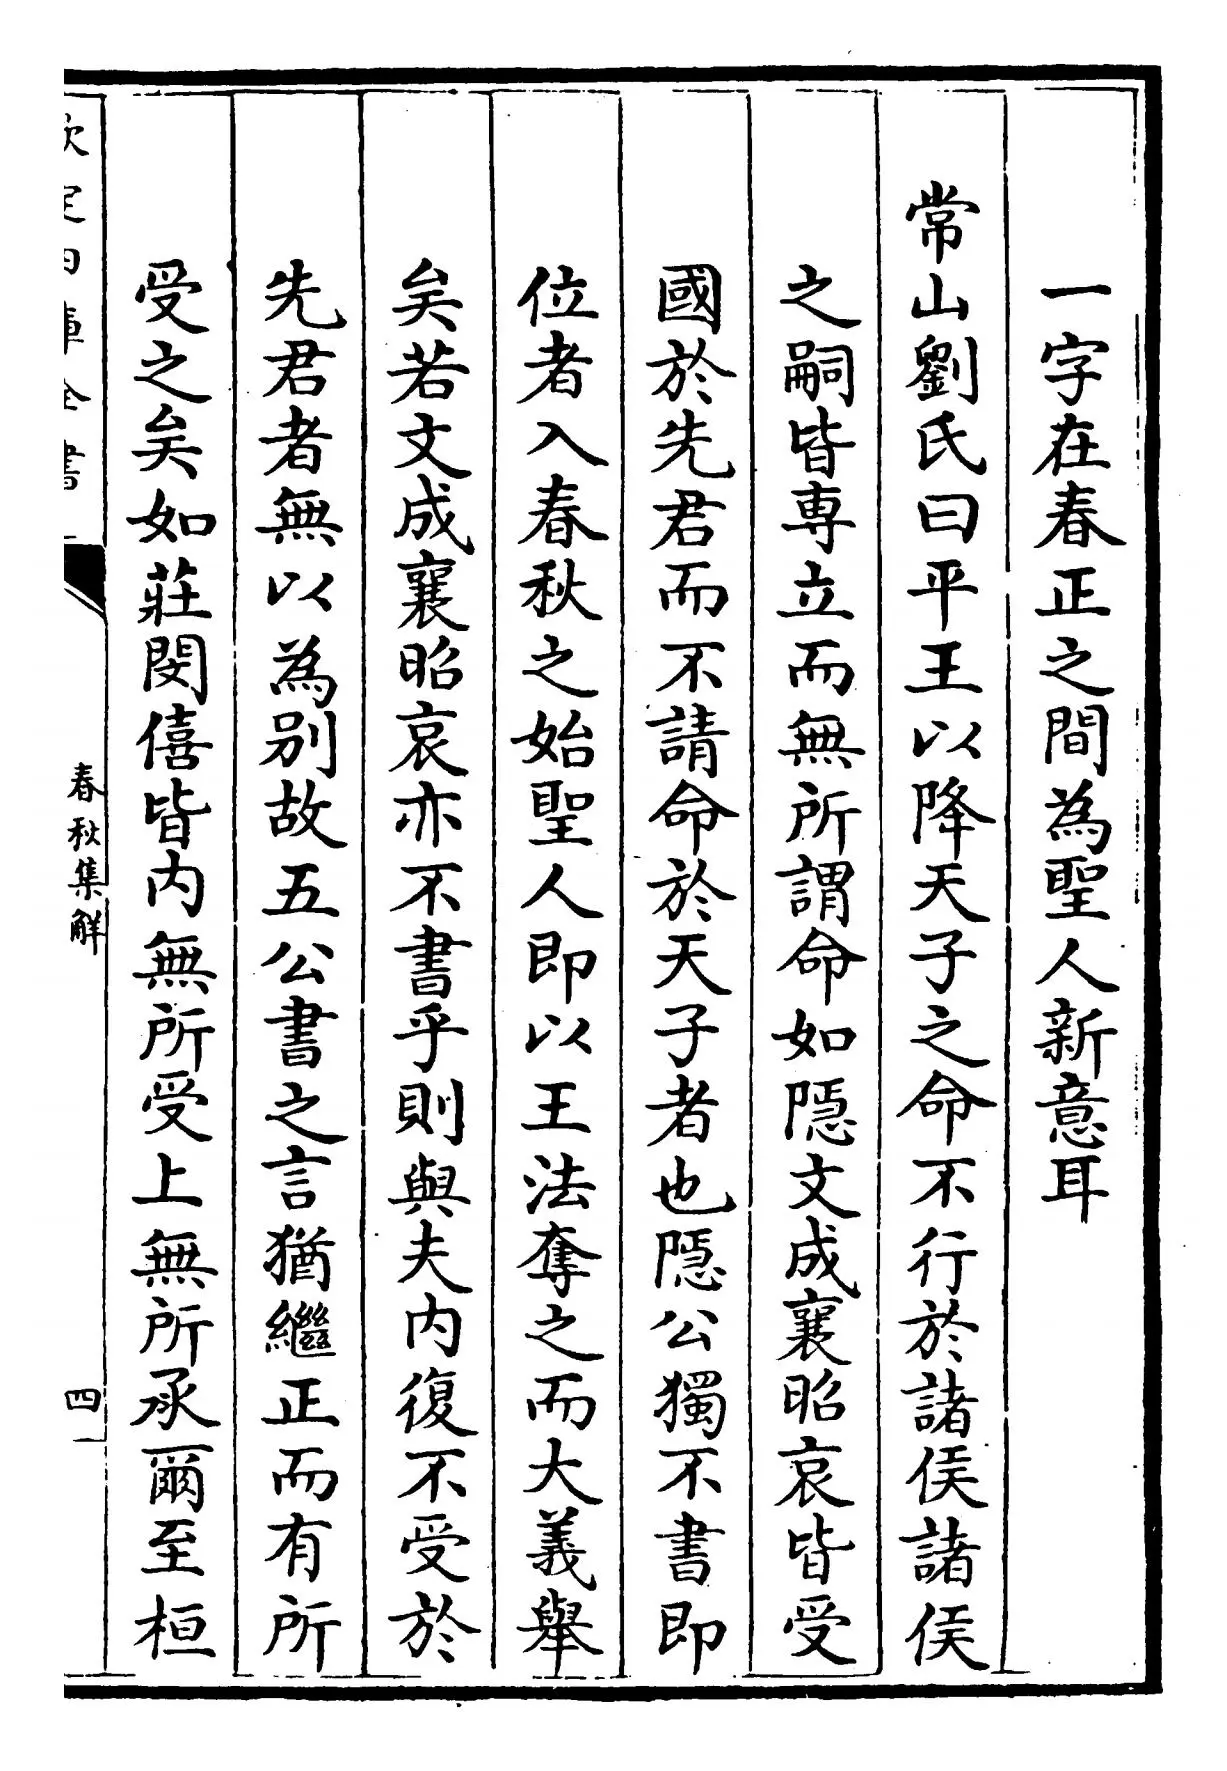 一字在春正之間為聖人新意耳
常山劉氏曰平王以降天子之命不行於諸侯諸侯
之嗣皆専立而無所謂命如隱文成襄昭哀皆受
國於先君而不請命於天子者也隱公獨不書即
位者入春秋之始聖人即以王法奪之而大義舉
矣若文成襄昭哀亦不書乎則與夫内復不受於
先君者無以為别故五公書之言猶繼正而有所
受之矣如莊閔僖皆内無所受上無所承爾至桓
欽定四庫全書
春秋集解
四